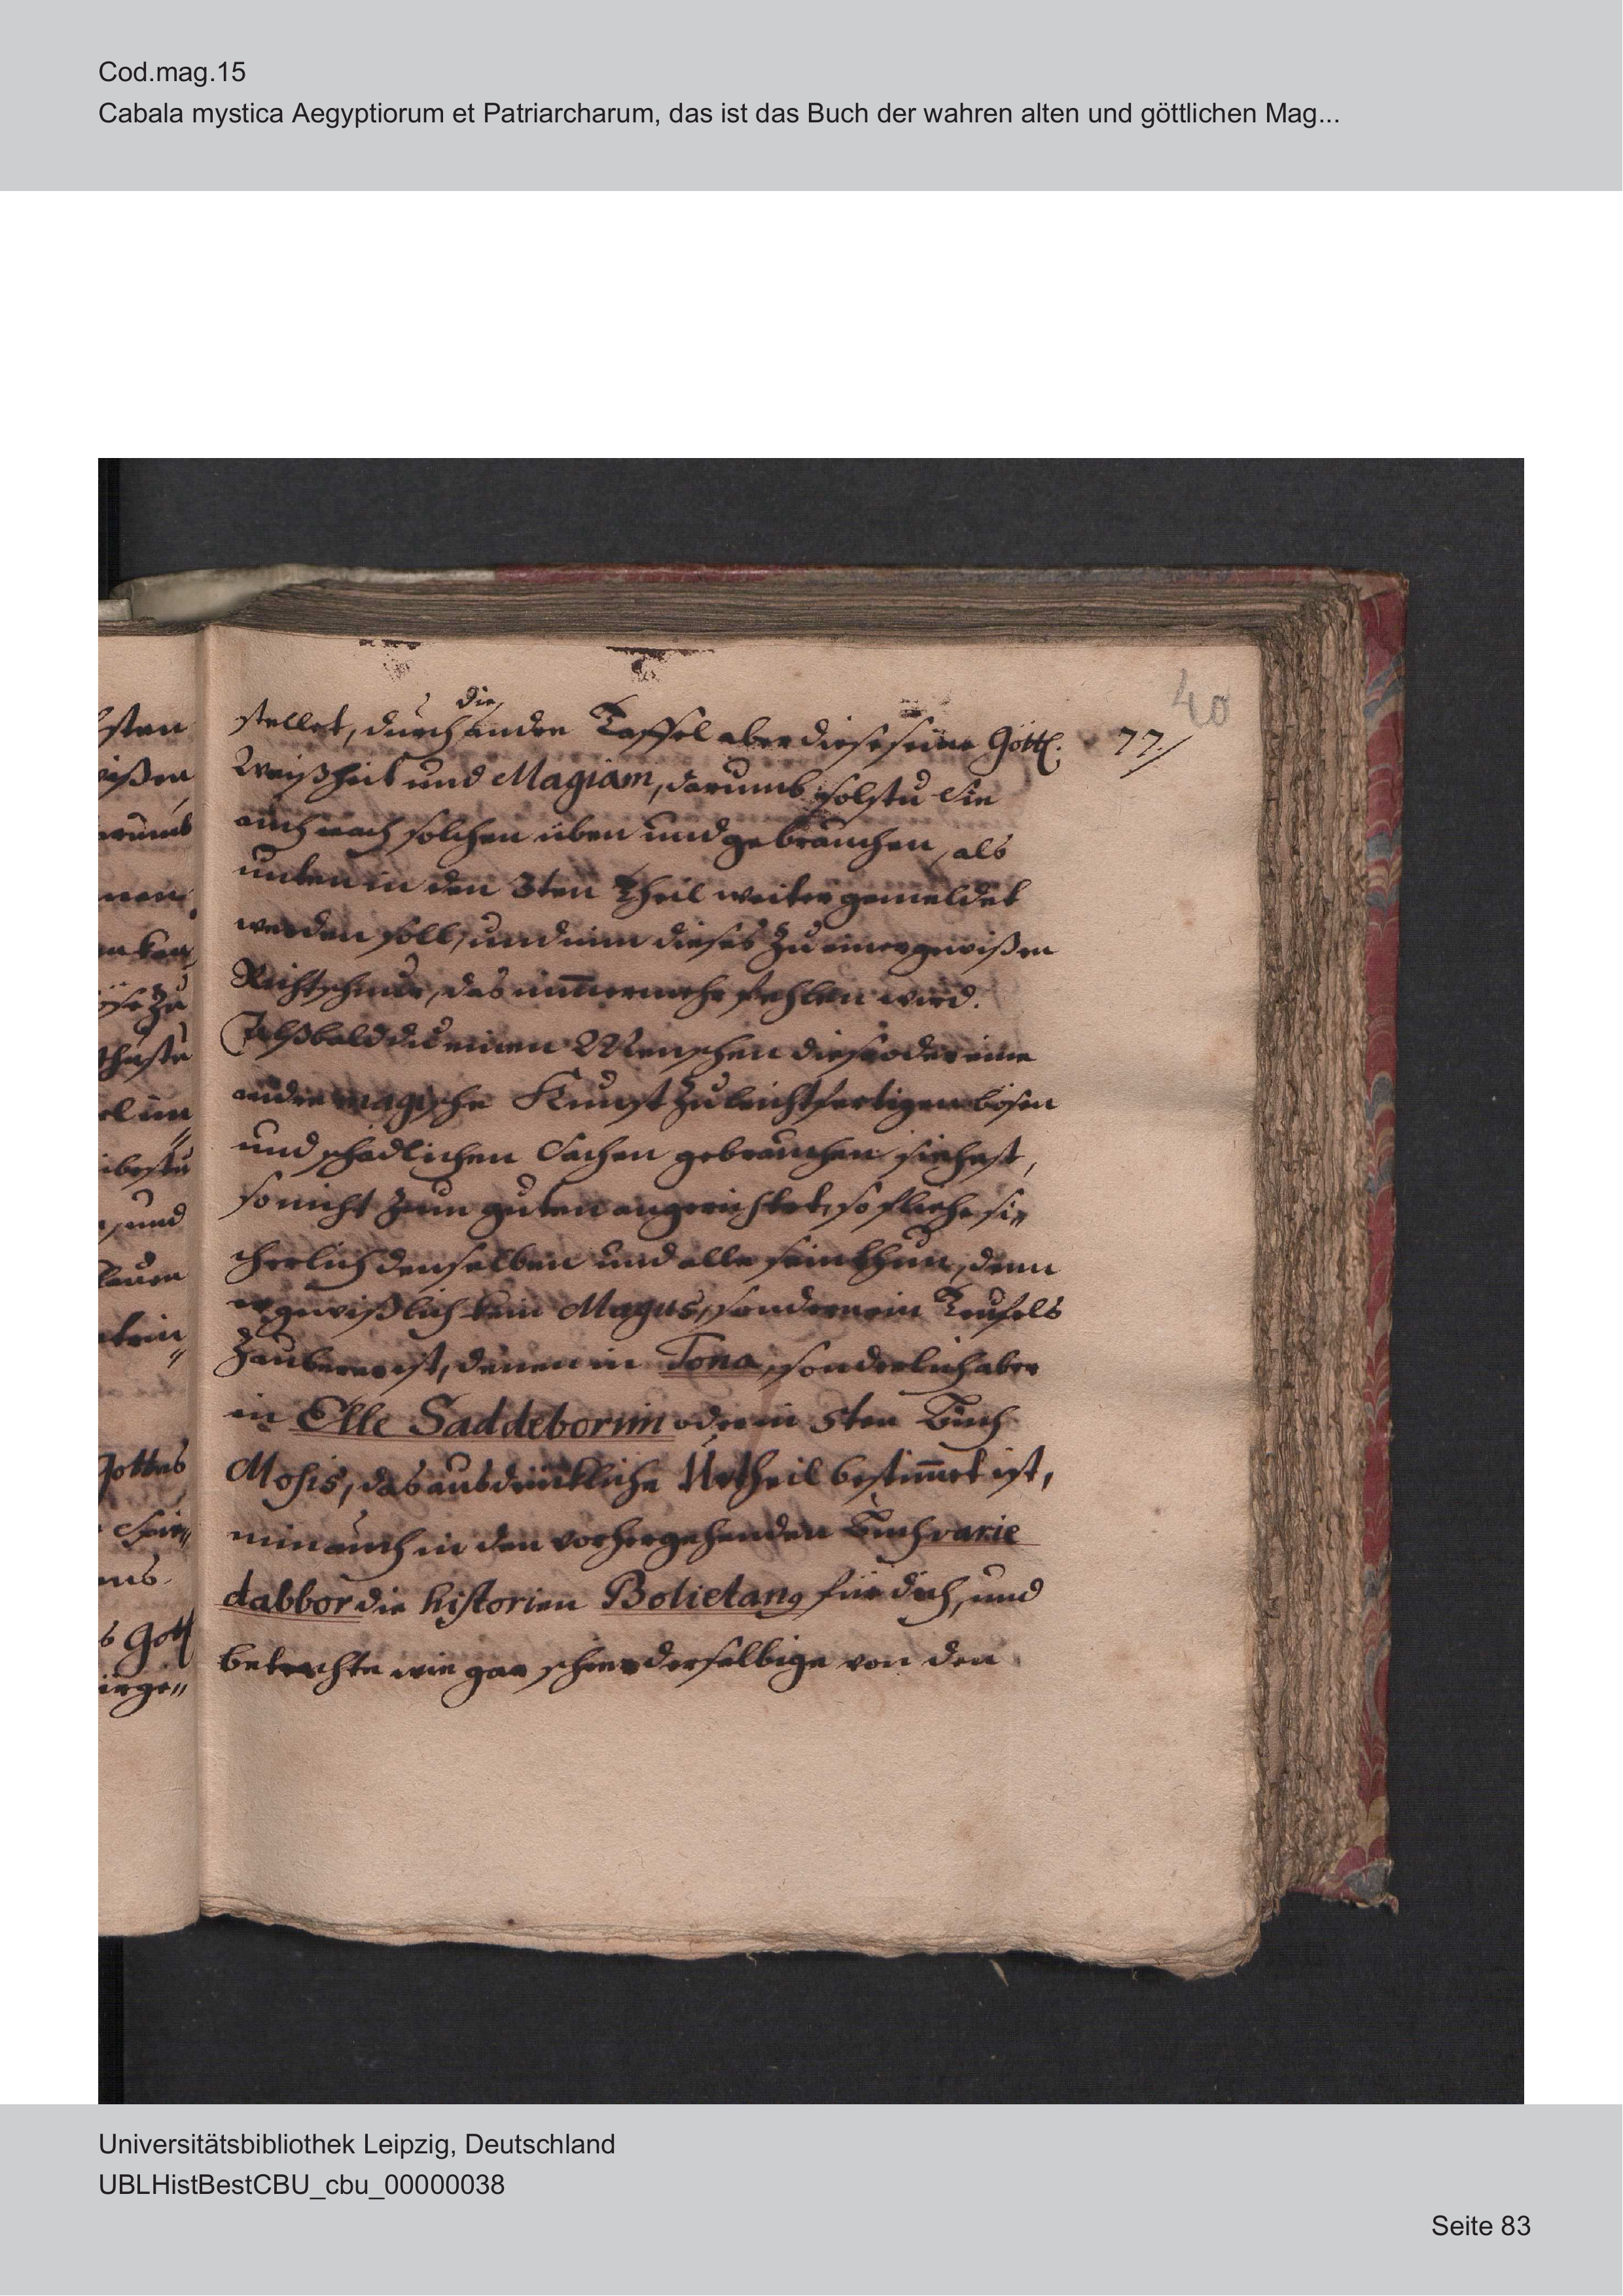 Cod.mag.15
Cabala mystica Aegyptiorum et Patriarcharum, das ist das Buch der wahren alten und göttlichen Mag...
40
77./
die
stellet, durch andre Taffel aber diese seine Göttl.
Weißheit und Magiam, darumb solstu Sie
auch nach solchen üben und gebrauchen, als
unten in den 3ten Theil weiter gemeldet
werden soll, und nim dieses zu einer gewißen
Richtschnur, das nim̄ermehr fehlen wird.
Alßbald du einen Menschen diese oder eine
andre magische Kunst zu leichtfertigen bösen
und schädlichen Sachen gebrauchen siehest,
so nicht zum guten angerichtet, so fliehe si„
cherlich denselben und alle sein thun, denn
er gewißlich kein Magus, sondern ein Teufels
Zauberer ist, denen in Tona, sonderlich aber
in Elle Saddeborim oder in 5ten Buch
Mosis, das ausdrückliche Urtheil bestim̄et ist,
nim auch in den vorhergehenden Buch varie
dabbor die historien für dich, und
betrachte wie gar schwer derselbige von den
Universitätsbibliothek Leipzig, Deutschland
UBLHistBestCBU_cbu_00000038
Seite 83